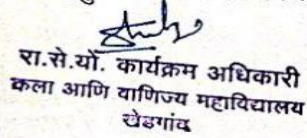 रा.से.यों. कार्यक्रम अधिकारी
कला आणि वाणिज्य महाविद्यालय
खेडगांव